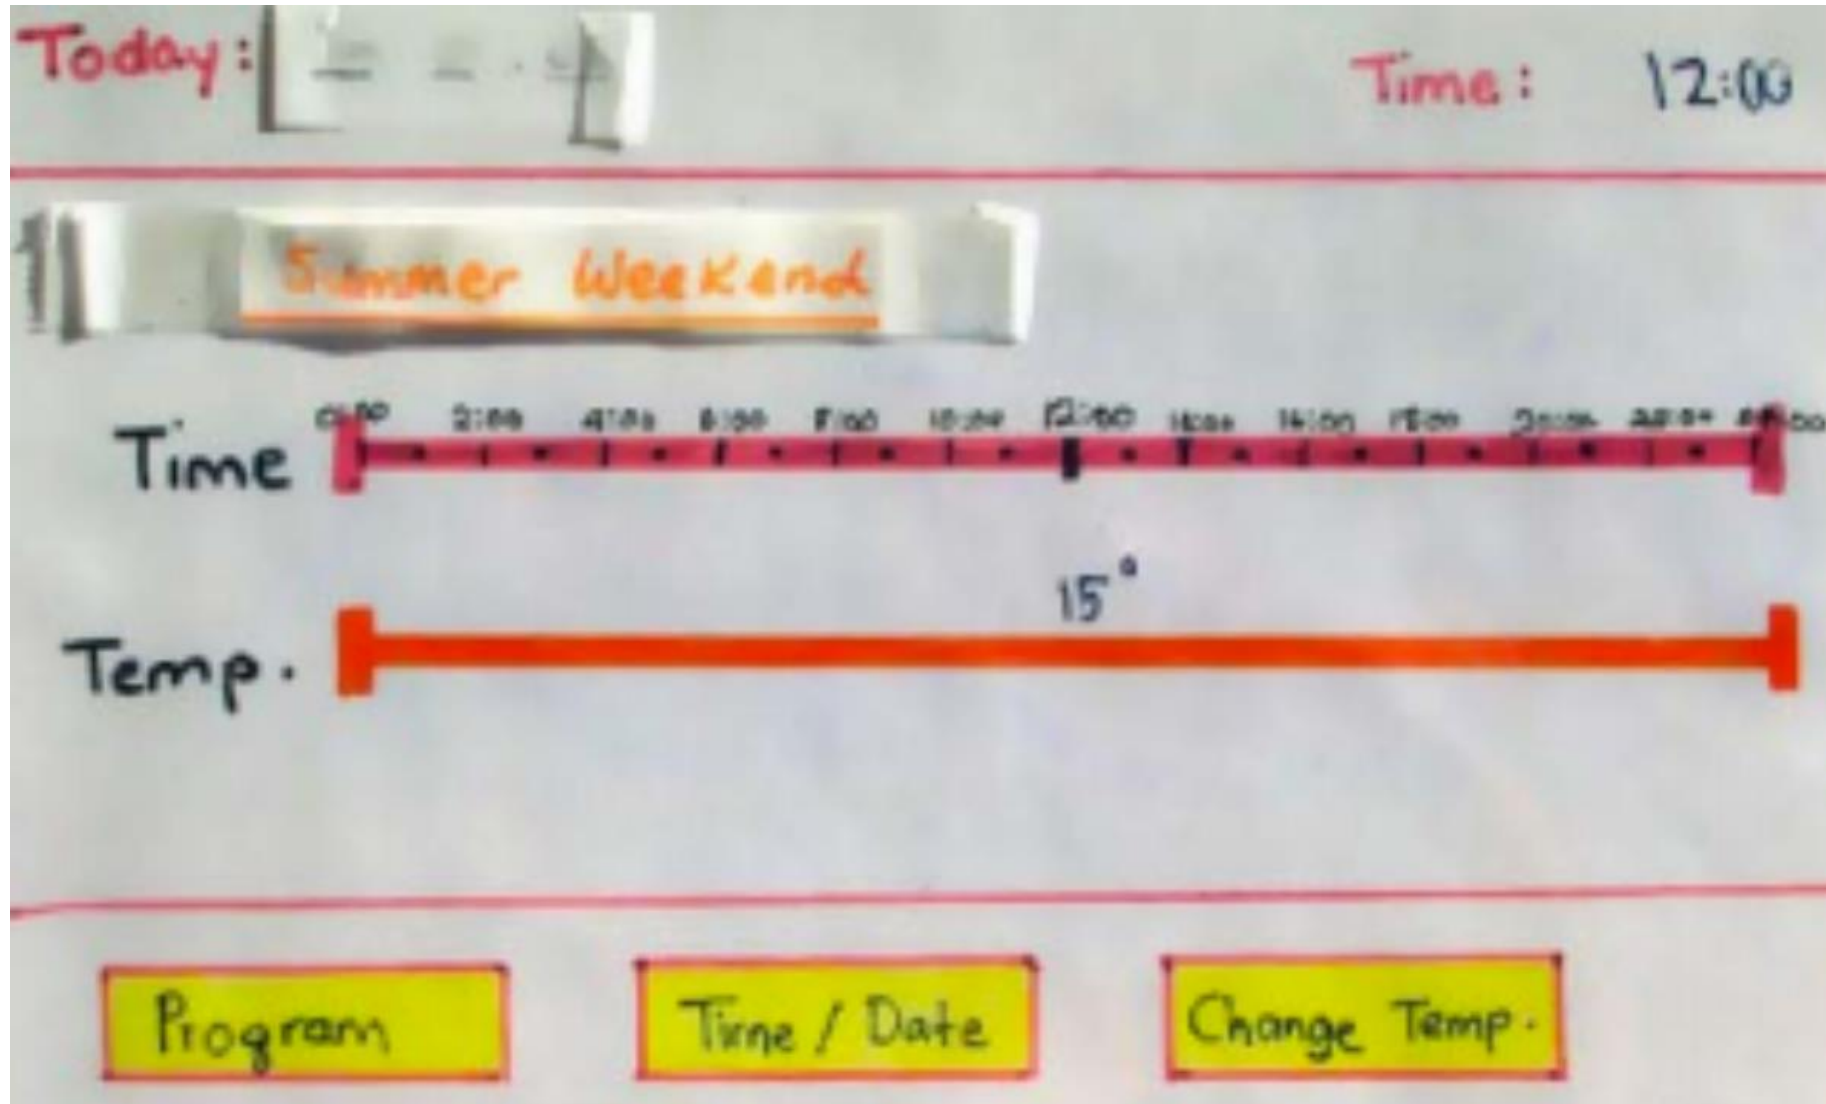 Today:
Time: 12:00
Summer Weekend
2:00 4:00 6:00 8:00 10:00 12:00 16:00 18:00 20:00
Time
15°
Temp.
Program
Time / Date
Change Temp.